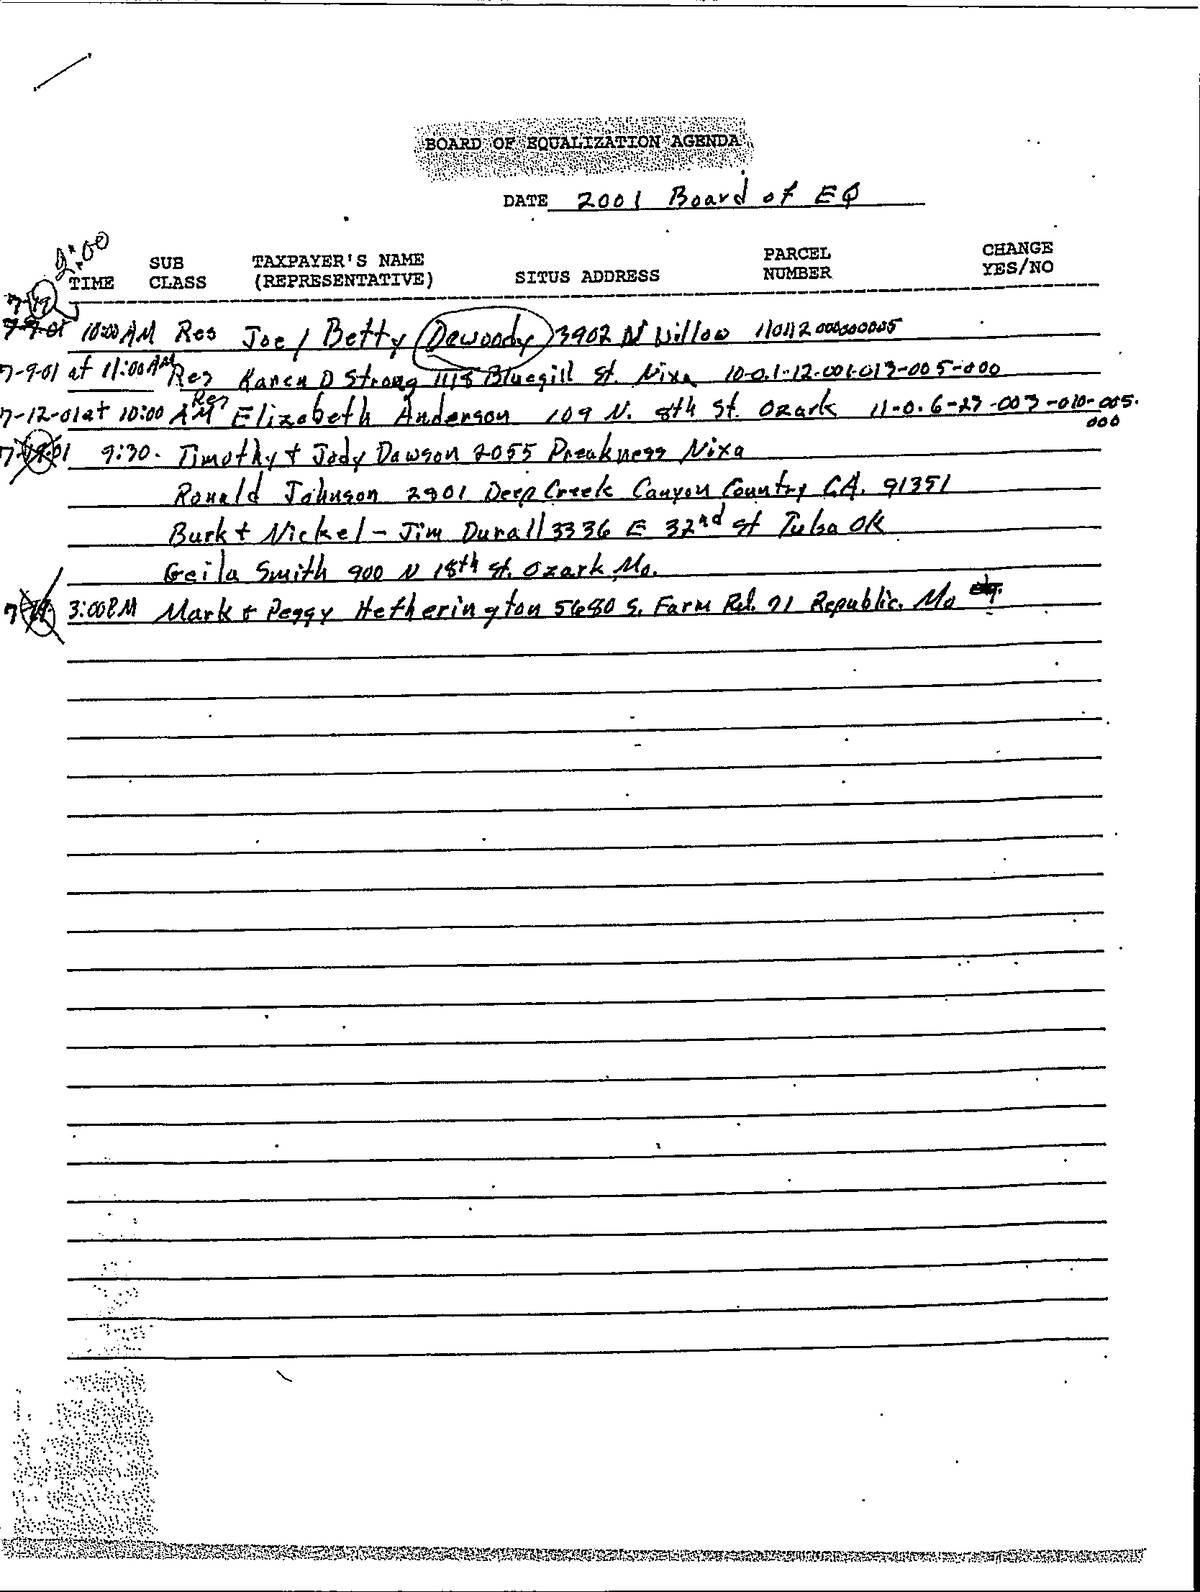 BOARD OF EQUALIZATION AGENDA
DATE 2001 Board of EQ
2:00
TIME SUB CLASS TAXPAYER'S NAME (REPRESENTATIVE) SITUS ADDRESS PARCEL NUMBER CHANGE YES/NO
7-9-01 10:00 AM Res Joe / Betty Dewoody 3902 N Willow 11011200000000005
7-9-01 at 11:00 AM Res Karen D Strong 1118 Bluegill St. Nixa 10-0.1-12-001-013-005-000
7-12-01 at 10:00 AM Res Elizabeth Anderson 109 N. 8th St. Ozark 11-0.6-23-003-010-005.
000
9:30- Timothy + Jody Dawson 2055 Preakness Nixa
Ronald Johnson 2901 Deep Creek Canyon Country CA. 91351
Burk + Nickel - Jim Durall 3336 E 32nd St Tulsa OK
Geila Smith 900 N 18th St. Ozark Mo.
3:00 PM Mark + Peggy Hetherington 5680 S. Farm Rd. 71 Republic. Mo